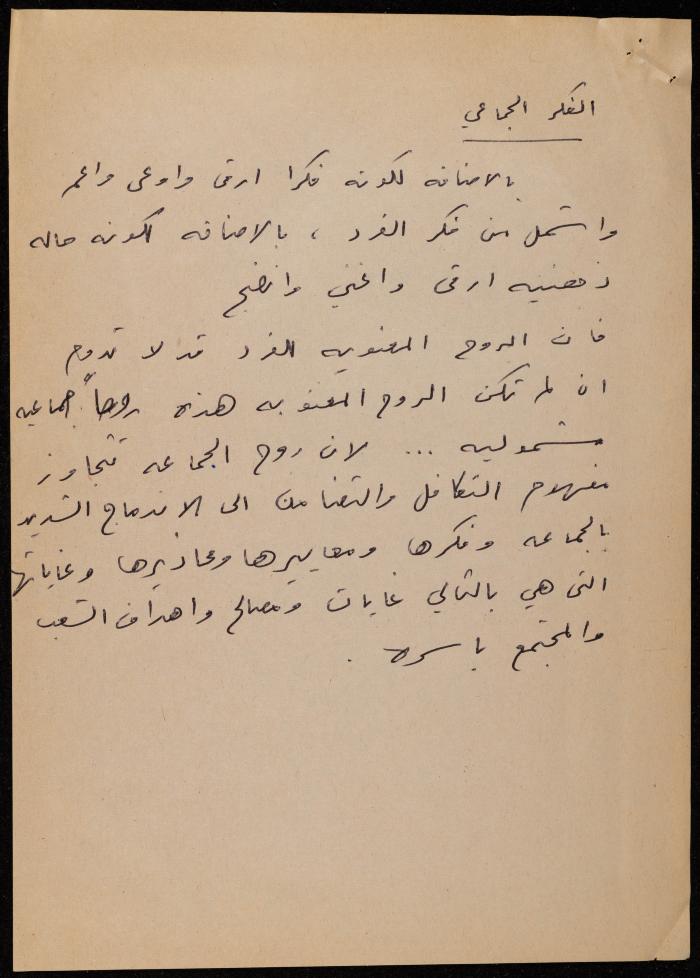 الفكر الجماعي
بالاضافه لكونه فكرا ارقى واوعى واعم
واشمل من فكر الفرد ، بالاضافه لكونه حاله
ذهنيه ارقى واغنى وانضج
فان الروح المعنويه للفرد قد لا تدوم
ان لم تكن الروح المعنويه هذه روحاً جماعيه
شموليه ... لان روح الجماعه تتجاوز
مفهوم التكافل والتضامن الى الاندماج الشديد
بالجماعه وفكرها ومعاييرها ومحاذيرها وغاياتها
التى هي بالتالي غايات ومصالح واهداف الشعب
والمجتمع باسره .